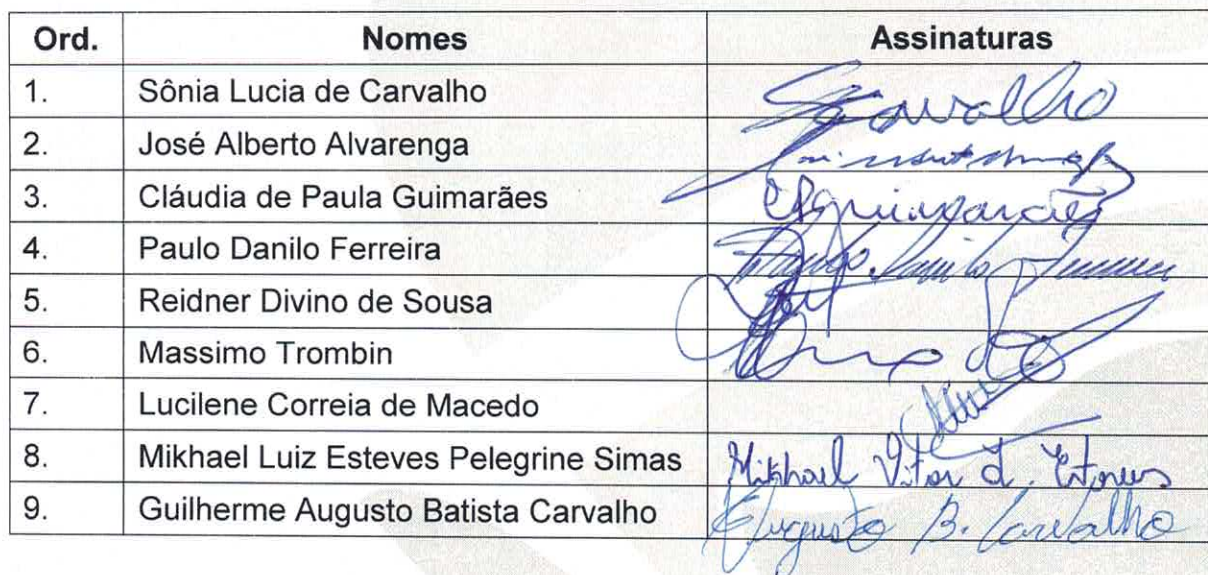 Ord. Nomes Assinaturas
1. Sônia Lucia de Carvalho Scarvalho
2. José Alberto Alvarenga
3. Cláudia de Paula Guimarães CPGuimarães
4. Paulo Danilo Ferreira Paulo Danilo Ferreira
5. Reidner Divino de Sousa
6. Massimo Trombin
7. Lucilene Correia de Macedo
8. Mikhael Luiz Esteves Pelegrine Simas Mikhael Vitor
9. Guilherme Augusto Batista Carvalho Augusto B. Carvalho